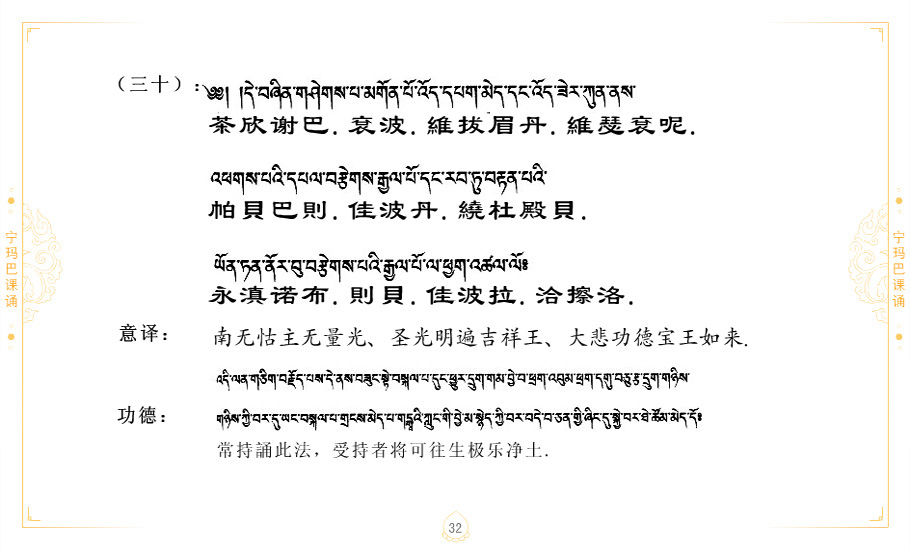 （三十）：༄༅། །དེ་བཞིན་གཤེགས་པ་མགོན་པོ་འོད་དཔག་མེད་དང་འོད་ཟེར་ཀུན་ནས་
茶欣谢巴．衮波．維拔眉丹．維瑟衮呢．
འཕགས་པའི་དཔལ་བརྩེགས་རྒྱལ་པོ་དང་རབ་ཏུ་བརྟན་པའི་
帕貝巴則．佳波丹．繞杜殿貝．
ཡོན་ཏན་ནོར་བུ་བརྩེགས་པའི་རྒྱལ་པོ་ལ་ཕྱག་འཚལ་ལོ༔
永滇诺布．則貝．佳波拉．洽擦洛．
意译：南无怙主无量光、圣光明遍吉祥王、大悲功德宝王如来．
འདི་ལན་གཅིག་བརྗོད་པས་དེ་ནས་བཟུང་སྟེ་བསྐལ་པ་དུང་ཕྱུར་དྲུག་གམ་བྱེ་བ་ཕྲག་འབུམ་ཕྲག་དགུ་བཅུ་རྩ་དྲུག་གཉིས་
功德：གཉིས་ཀྱི་བར་དུ་ཡང་བསྐལ་པ་གྲངས་མེད་པ་གངྒཱའི་ཀླུང་གི་བྱེ་མ་སྙེད་ཀྱི་བར་བདེ་བ་ཅན་གྱི་ཞིང་དུ་སྐྱེ་བར་ཐེ་ཚོམ་མེད་དོ༔
常持誦此法，受持者将可往生极乐净土．
宁玛巴课诵
宁玛巴课诵
32